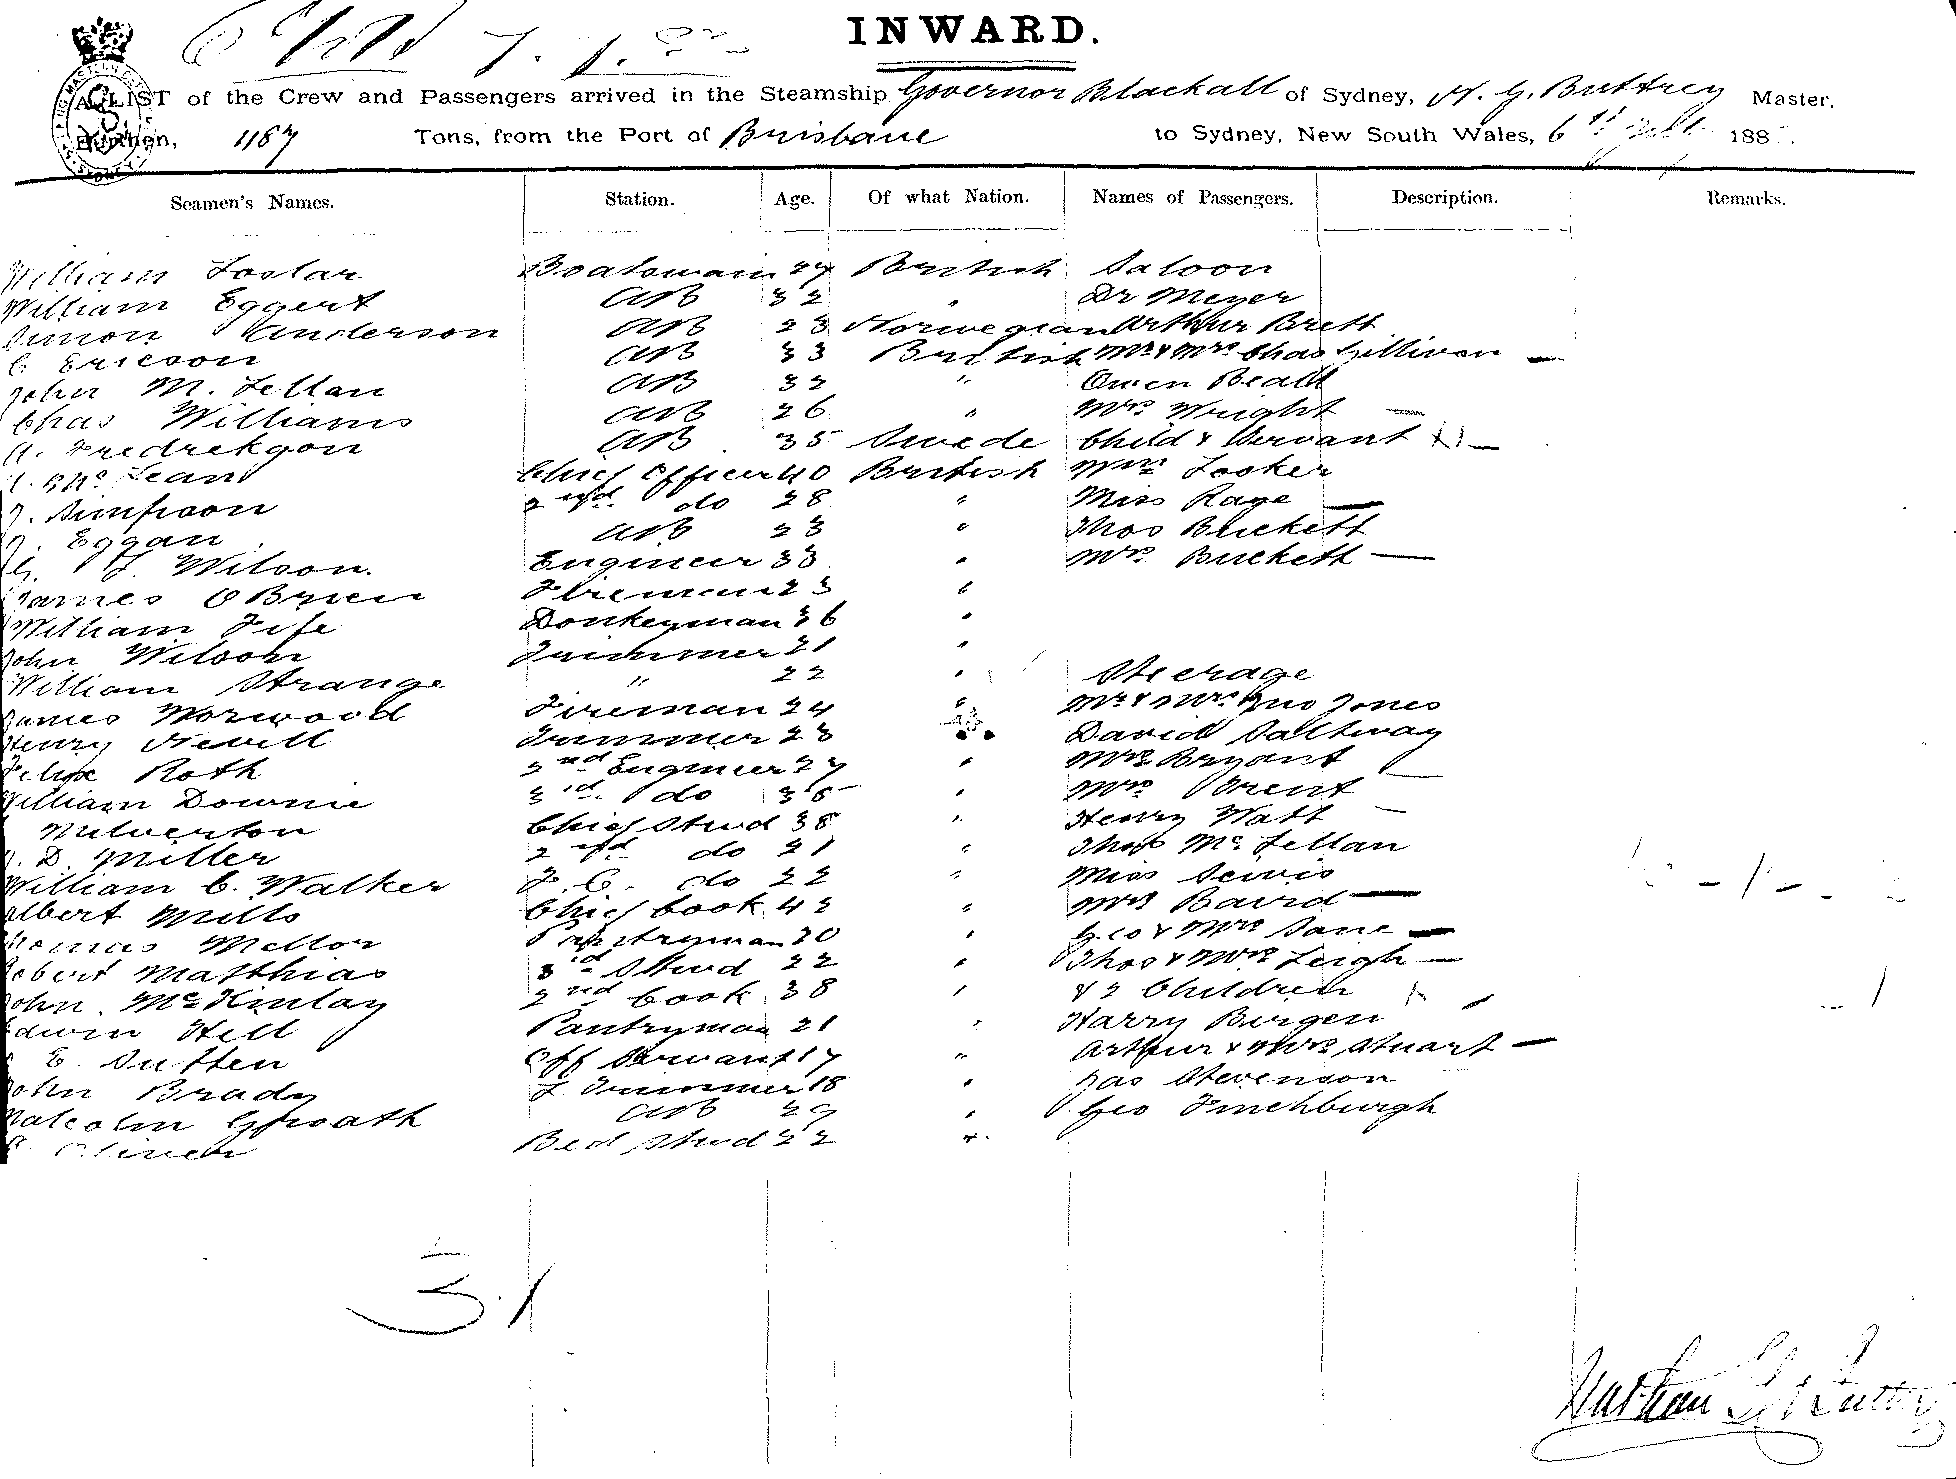 INWARD.
A LIST of the Crew and Passengers arrived in the Steamship Governor Blackall of Sydney, N. G. Buttrey Master,
Burthen, 1187 Tons, from the Port of Brisbane to Sydney, New South Wales, 6th 188
Seamen's Names. Station. Age. Of what Nation. Names of Passengers. Description. Remarks.
William Foslar Boatswain 27 British Saloon
William Eggert AB 32 " Dr Meyer
Simon Anderson AB 23 Norwegian Arthur Brett
C Ericson AB 33 British Mr & Mrs Chas Sillivan —
John M. Lellan AB 32 " Owen Beall
Chas Williams AB 26 " Mrs Wright —
A. Fredrekson AB 35 Swede Child & Servant —
Mc Lean Chief Officer 40 British Mrs Looker
J. Simpson 2nd do 28 " Miss Rage —
J. Eggan AB 23 " Thos Buckett
G. J. Wilson. Engineer 33 " Mrs Buckett —
James O Brien Fireman 23 "
William Fife Donkeyman 36 "
John Wilson Trimmer 21 "
William Strange " 22 " Steerage
James Worwood Fireman 24 " Mr & Mrs Jno Jones
Henry Nevill Trimmer 23 " David Saltway
Felix Roth 2nd Engineer 27 " Mrs Bryant
William Downie 3rd do 35 " Mrs Brent —
Wulverton Chief Stwd 38 " Henry Watt —
J. D. Miller 2nd do 21 " Thos Mc Lellan
William C. Walker F.C. do 22 " Miss Lewis
Albert Mills Chief Cook 42 " Mrs Baird —
Thomas Mellor Pantryman 20 " Geo & Mrs Lane —
Robert Matthias 3rd Stwd 22 " Thos & Mrs Leigh —
John McKinlay 2nd Cook 38 " & 2 Children
Edwin Hill Pantryman 21 " Harry Burgen
E. Sutten Off Servant 17 " Arthur & Mrs Stuart —
John Brady F Trimmer 18 " Jas Stevenson
Malcolm AB 29 " Geo Finchburgh
Oliver Bed Stwd 22 "
31
Nathan G Buttrey